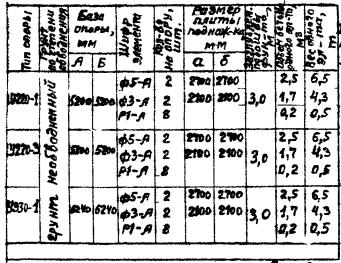 Тип опоры
Грунт по степени обводнения
База опоры, мм
А Б
Шифр элемента
Кол-во на опору, шт.
Размер плиты (подножника) мм
а б
м³
т
необводненный грунт
У220-1 5200 5200 Ф5-А 2 2700 2700 3,0 2,5 6,5
Ф3-А 2 2100 2100 1,7 4,3
Р1-А 8 0,2 0,5
У220-3 5800 5800 Ф5-А 2 2700 2700 3,0 2,5 6,5
Ф3-А 2 2100 2100 1,7 4,3
Р1-А 8 0,2 0,5
У330-1 6240 6240 Ф5-А 2 2700 2700 3,0 2,5 6,5
Ф3-А 2 2100 2100 1,7 4,3
Р1-А 8 0,2 0,5